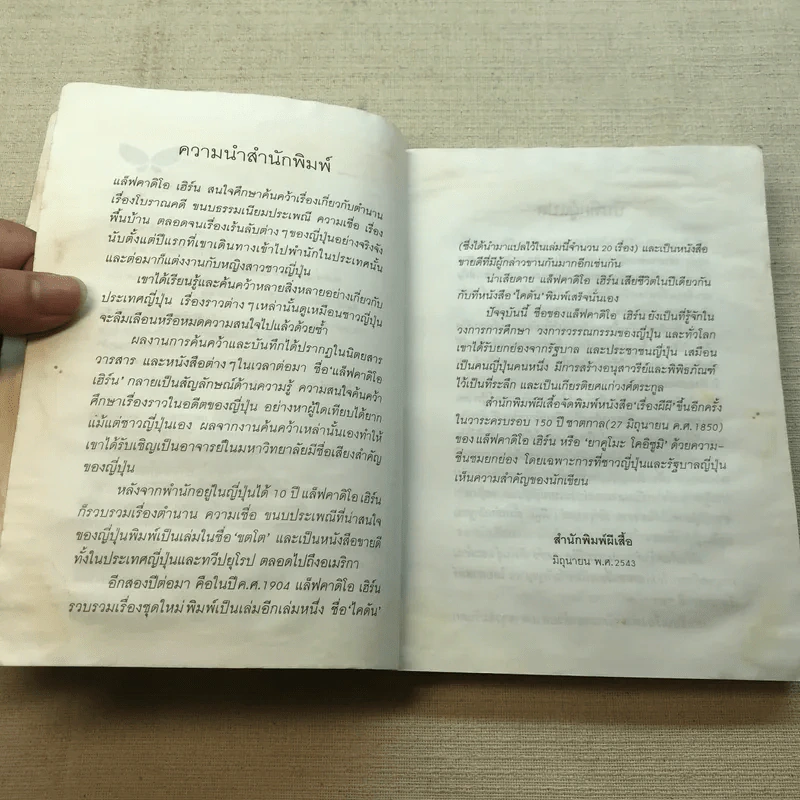 ความนำสำนักพิมพ์
แล็ฟคาดิโอ เฮิร์น สนใจศึกษาค้นคว้าเรื่องเกี่ยวกับตำนาน
เรื่องโบราณคดี ขนบธรรมเนียมประเพณี ความเชื่อ เรื่อง
พื้นบ้าน ตลอดจนเรื่องเร้นลับต่างๆของญี่ปุ่นอย่างจริงจัง
นับตั้งแต่ปีแรกที่เขาเดินทางเข้าไปพำนักในประเทศนั้น
และต่อมาก็แต่งงานกับหญิงสาวชาวญี่ปุ่น
เขาได้เรียนรู้และค้นคว้าหลายสิ่งหลายอย่างเกี่ยวกับ
ประเทศญี่ปุ่น เรื่องราวต่างๆเหล่านั้นดูเหมือนชาวญี่ปุ่น
จะลืมเลือนหรือหมดความสนใจไปแล้วด้วยซ้ำ
ผลงานการค้นคว้าและบันทึกได้ปรากฏในนิตยสาร
วารสาร และหนังสือต่างๆในเวลาต่อมา ชื่อ'แล็ฟคาดิโอ
เฮิร์น' กลายเป็นสัญลักษณ์ด้านความรู้ ความสนใจค้นคว้า
ศึกษาเรื่องราวในอดีตของญี่ปุ่น อย่างหาผู้ใดเทียบได้ยาก
แม้แต่ชาวญี่ปุ่นเอง ผลจากงานค้นคว้าเหล่านั้นเองทำให้
เขาได้รับเชิญเป็นอาจารย์ในมหาวิทยาลัยมีชื่อเสียงสำคัญ
ของญี่ปุ่น
หลังจากพำนักอยู่ในญี่ปุ่นได้ 10 ปี แล็ฟคาดิโอ เฮิร์น
ก็รวบรวมเรื่องตำนาน ความเชื่อ ขนบประเพณีที่น่าสนใจ
ของญี่ปุ่นพิมพ์เป็นเล่มในชื่อ 'ขตโต' และเป็นหนังสือขายดี
ทั้งในประเทศญี่ปุ่นและทวีปยุโรป ตลอดไปถึงอเมริกา
อีกสองปีต่อมา คือในปีค.ศ.1904 แล็ฟคาดิโอ เฮิร์น
รวบรวมเรื่องชุดใหม่ พิมพ์เป็นเล่มอีกเล่มหนึ่ง ชื่อ'ไคดัน'
(ซึ่งได้นำมาแปลไว้ในเล่มนี้จำนวน 20 เรื่อง) และเป็นหนังสือ
ขายดีที่มีผู้กล่าวขานกันมากอีกเช่นกัน
น่าเสียดาย แล็ฟคาดิโอ เฮิร์น เสียชีวิตในปีเดียวกัน
กับที่หนังสือ'ไคดัน'พิมพ์เสร็จนั่นเอง
ปัจจุบันนี้ ชื่อของแล็ฟคาดิโอ เฮิร์น ยังเป็นที่รู้จักใน
วงการการศึกษา วงการวรรณกรรมของญี่ปุ่น และทั่วโลก
เขาได้รับยกย่องจากรัฐบาล และประชาชนญี่ปุ่น เสมือน
เป็นคนญี่ปุ่นคนหนึ่ง มีการสร้างอนุสาวรีย์และพิพิธภัณฑ์
ไว้เป็นที่ระลึก และเป็นเกียรติยศแก่วงศ์ตระกูล
สำนักพิมพ์ผีเสื้อจัดพิมพ์หนังสือ'เรื่องผีผี'ขึ้นอีกครั้ง
ในวาระครบรอบ 150 ปี ชาตกาล(27 มิถุนายน ค.ศ.1850)
ของ แล็ฟคาดิโอ เฮิร์น หรือ 'ยาคูโมะ โคอิซูมิ' ด้วยความ-
ชื่นชมยกย่อง โดยเฉพาะการที่ชาวญี่ปุ่นและรัฐบาลญี่ปุ่น
เห็นความสำคัญของนักเขียน
สำนักพิมพ์ผีเสื้อ
มิถุนายน พ.ศ.2543